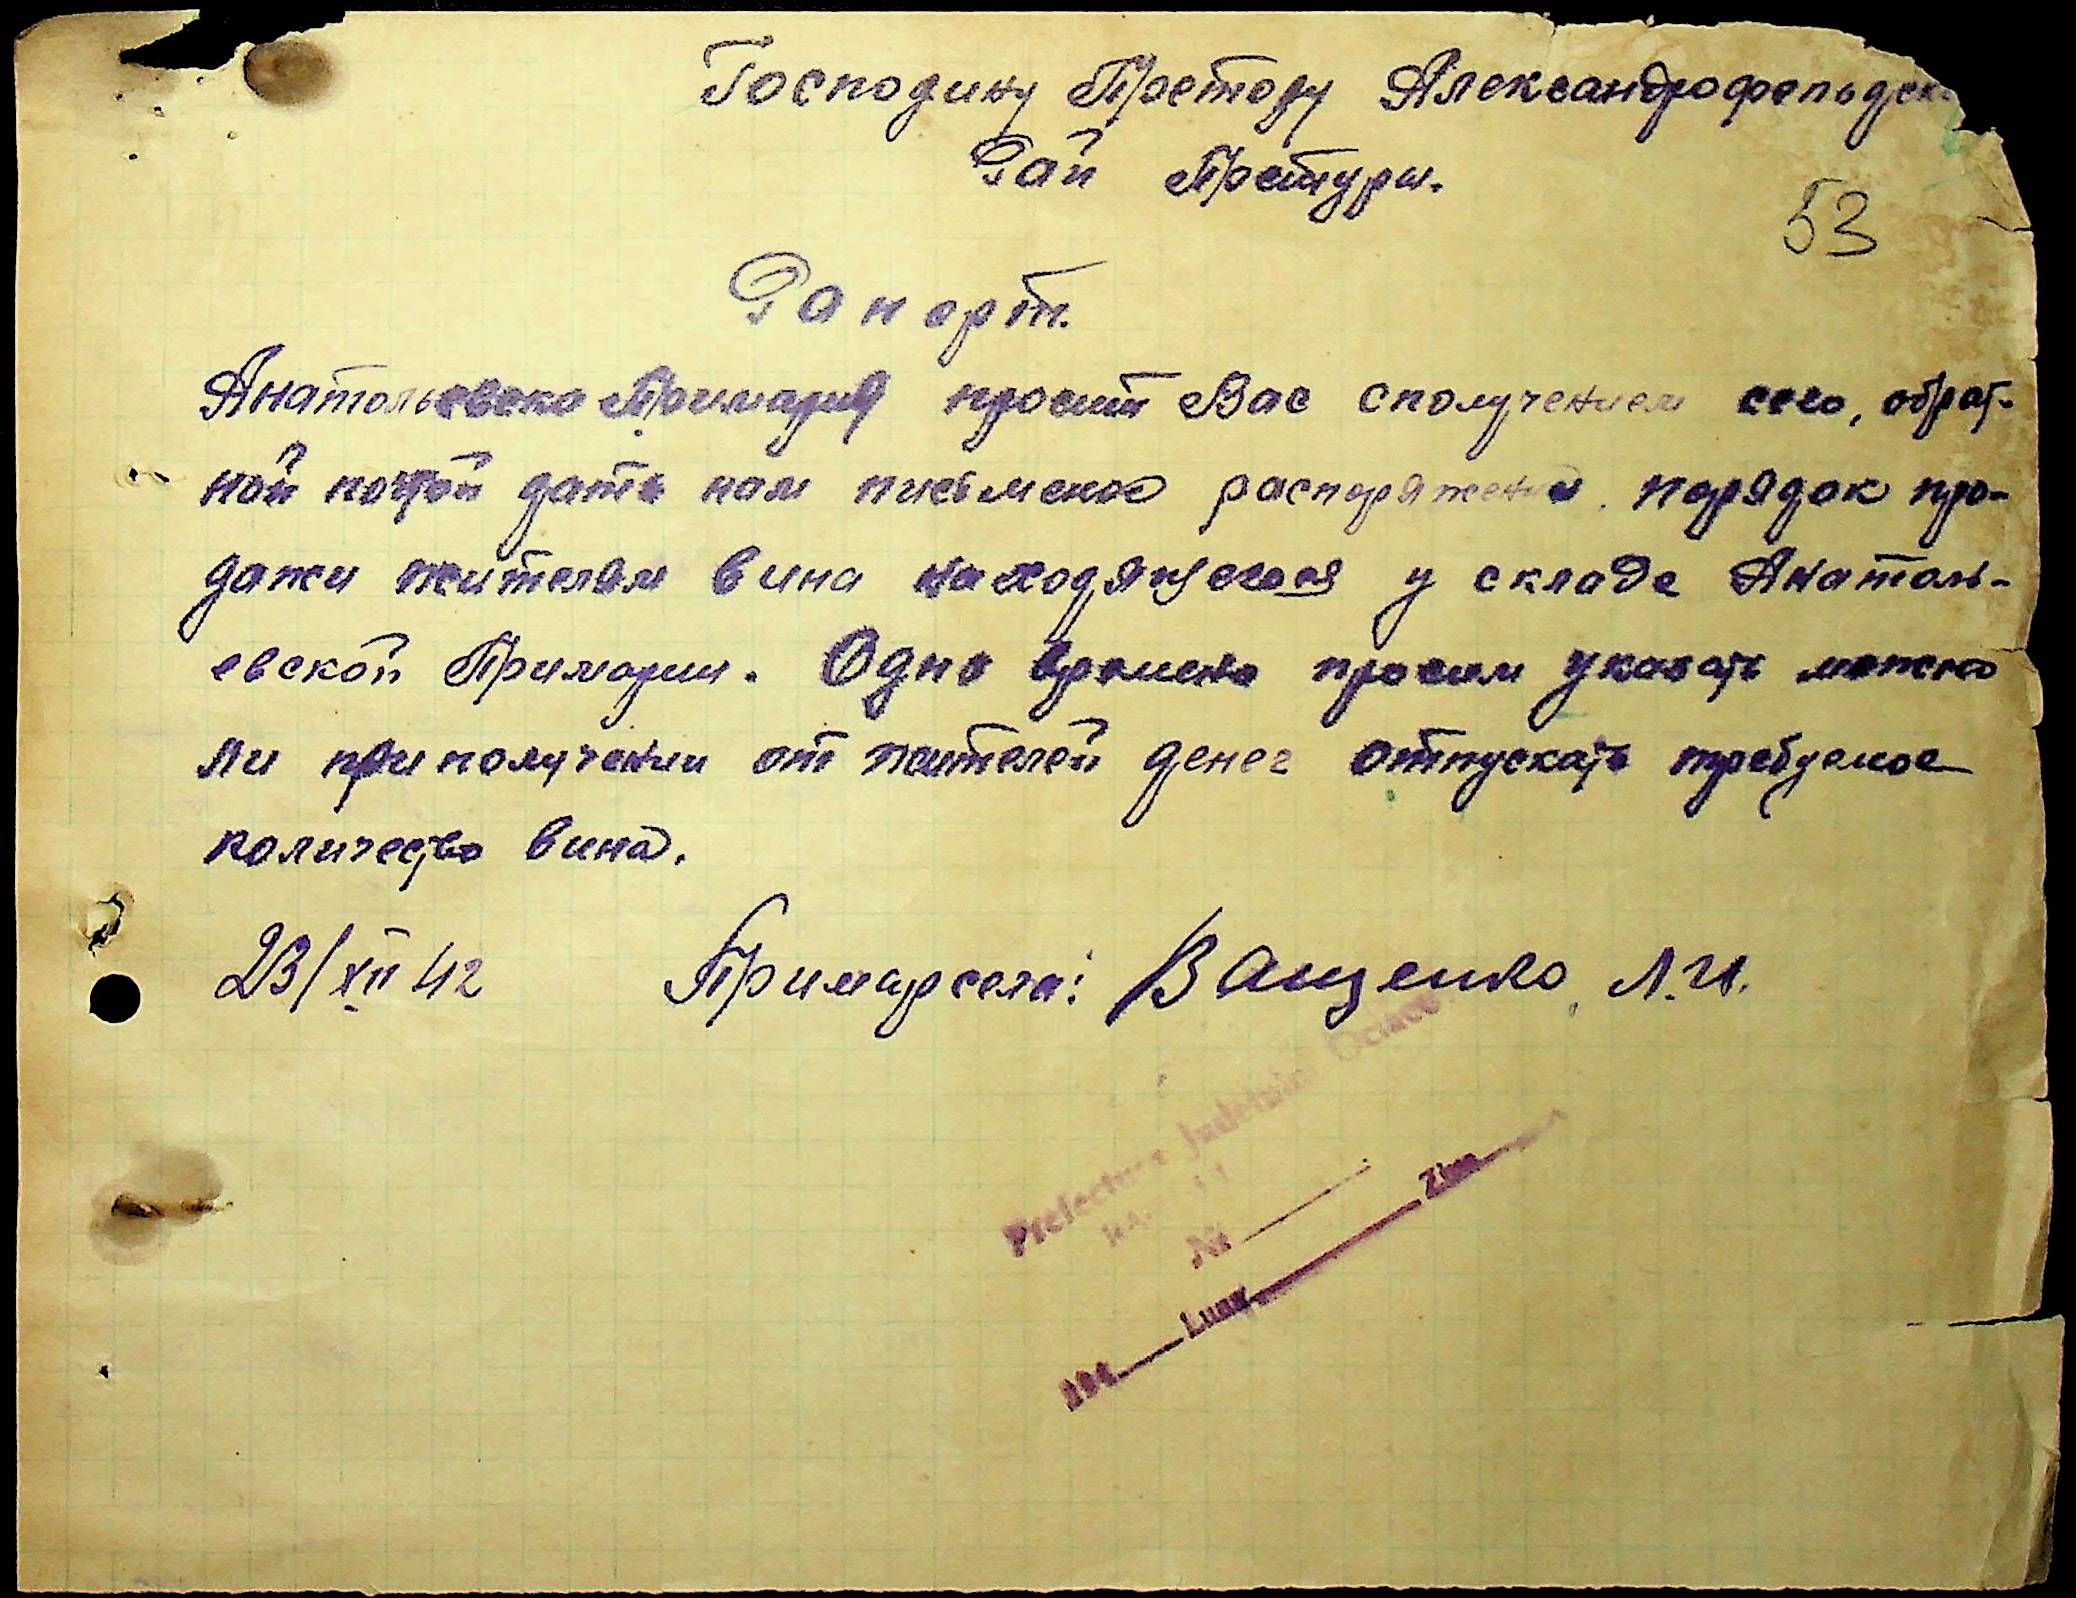 Господину Претору Александрофельдск
Рай Претуры.
53
Рапорт.
Анатольевска Примария просит Вас сполучением сего, обрат-
ной почтой дать нам письменое распоряжение порядок про-
дажи жителям вина находящегося у складе Анатоль-
евской Примарии. Одно времено просим указать можно
ли при получении от жителей денег отпускать требуемое
количество вина.
23/XII 42 Примарсела: Ващенко, Л.И.
Prefectura Judetului Oceacov
Nr
194 Luna Ziua